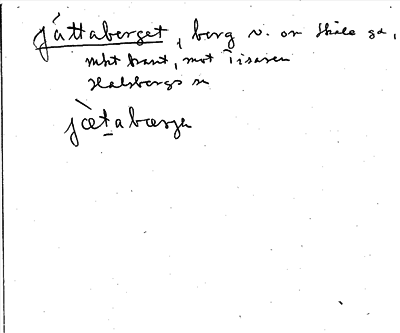 Jättaberget, berg v. om Skåle gd,
mkt brant, mot Tisaren
Halsbergs sn
jætabærjə